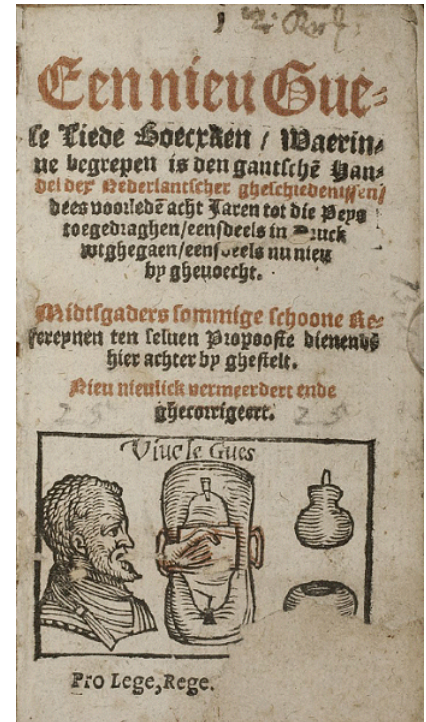 Een nieu Gue⸗
se Liede Boecxken / Waerin⸗
ne begrepen is den gantschē Han⸗
del der Nederlantscher gheschiedenissen/
dees voorledē acht Jaren tot die Peys
toegedraghen/eensdeels in Druck
wtghegaen/eensdeels nu nieu
by gheuoecht.
Midtsgaders sommige schoone Re⸗
fereynen ten seluen Propooste dienende
hier achter by ghestelt.
Nieu nieulick vermeerdert ende
ghecorrigeert.
Viue le Gues
Pro Lege, Rege.